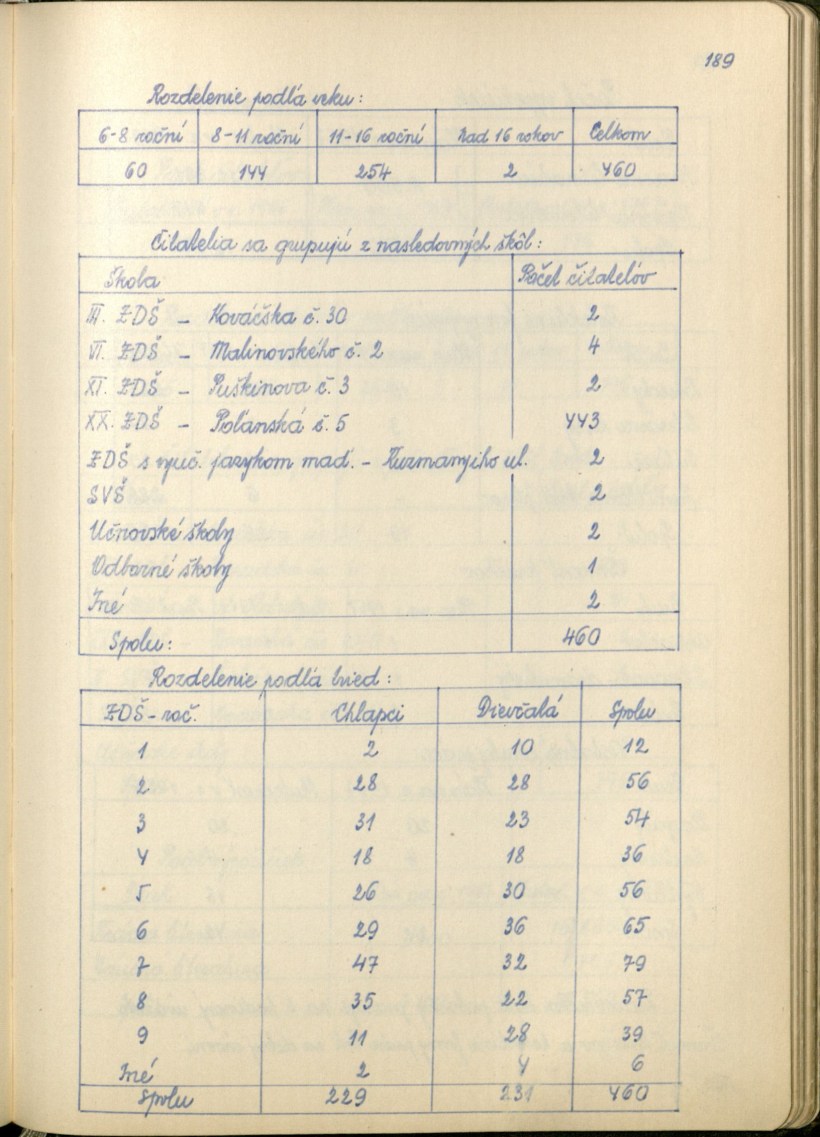 189
Rozdelenie podľa veku:
6-8 roční 8-11 roční 11-16 roční Nad 16 rokov Celkom
60 144 254 2 460
Čitatelia sa grupujú z nasledovných škôl:
Škola Počet čitateľov
III. ZDŠ - Kováčska č. 30 2
VI. ZDŠ - Malinovského č. 2 4
XI. ZDŠ - Puškinova č. 3 2
XX. ZDŠ - Poľanská č. 5 443
ZDŠ s vyuč. jazykom maď. - Kuzmányiho ul. 2
SVŠ 2
Učňovské školy 2
Odborné školy 1
Iné 2
Spolu: 460
Rozdelenie podľa tried:
ZDŠ - roč. Chlapci Dievčatá Spolu
1 2 10 12
2 28 28 56
3 31 23 54
4 18 18 36
5 26 30 56
6 29 36 65
7 47 32 79
8 35 22 57
9 11 28 39
Iné 2 4 6
Spolu 229 231 460